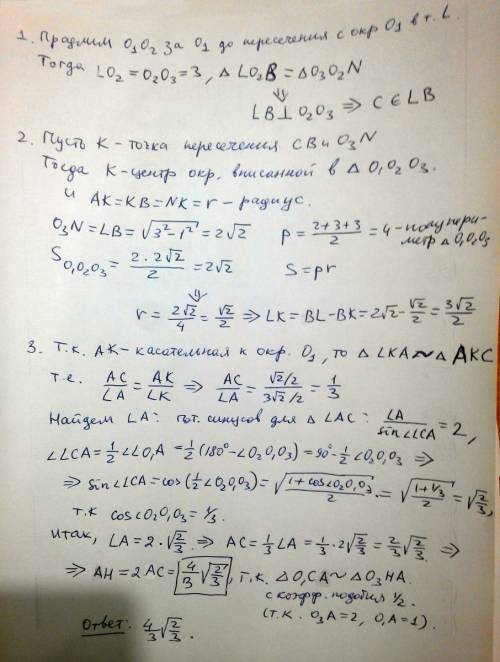 1. Продлим O₁O₂ за O₁ до пересечения с окр O₁ в т. L.
Тогда LO₂ = O₂O₃ = 3, Δ LO₂B = ΔO₃O₂N
⇓
LB ⊥ O₂O₃ ⇒ C ∈ LB
2. Пусть K - точка пересечения CB и O₃N
Тогда K - центр окр. вписанной в Δ O₁O₂O₃.
и AK = KB = NK = r - радиус.
O₃N = LB = √(3² - 1²) = 2√2 p = (2+3+3)/2 = 4 - полупери-
метр Δ O₁O₂O₃
S_O₁O₂O₃ = (2 · 2√2)/2 = 2√2 S = pr
⇓
r = 2√2/4 = √2/2 ⇒ LK = BL - BK = 2√2 - √2/2 = 3√2/2
3. Т.к. AK - касательная к окр. O₁, то Δ LKA ~ Δ AKC
т.е. AC/LA = AK/LK ⇒ AC/LA = (√2/2)/(3√2/2) = 1/3
Найдем LA: по т. синусов для Δ LAC: LA/sin∠LCA = 2,
∠LCA = ½∠LO₁A = ½(180° - ∠O₂O₁O₃) = 90° - ½∠O₂O₁O₃ ⇒
⇒ sin∠LCA = cos(½∠O₂O₁O₃) = √((1 + cos∠O₂O₁O₃)/2) = √((1 + 1/3)/2) = √(2/3),
т.к cos∠O₂O₁O₃ = 1/3.
Итак, LA = 2·√(2/3) ⇒ AC = ⅓LA = ⅓ · 2√(2/3) = ⅔√(2/3) ⇒
⇒ AH = 2AC = 4/3 √(2/3), т.к. Δ O₁CA ~ Δ O₃HA.
с коэфф. подобия 1/2.
(т.к. O₃A = 2, O₁A = 1).
Ответ: 4/3 √(2/3).